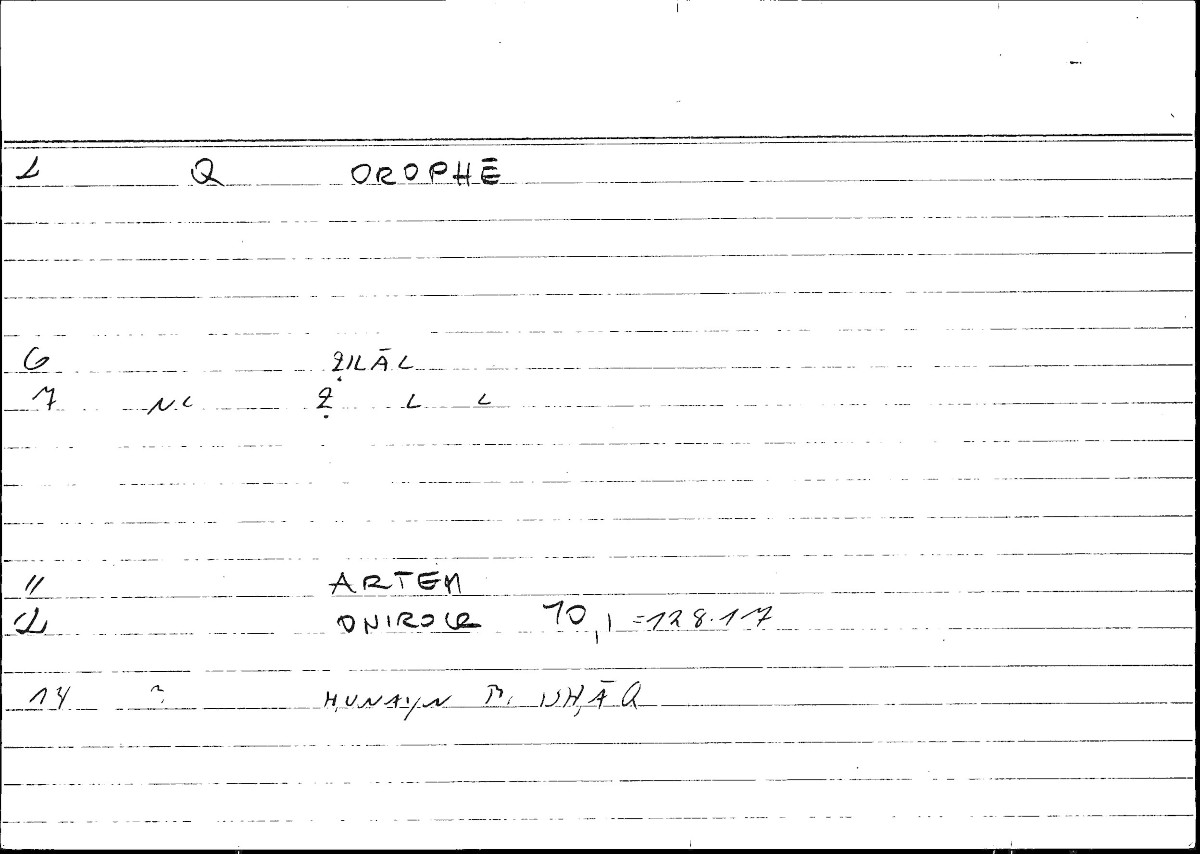 Q OROPHĒ
6 ẒILĀL
7 NC Ẓ L L
11 ARTEM
ONIROCR 10,1 =128.17
14 ḤUNAYN B. ISḤĀQ